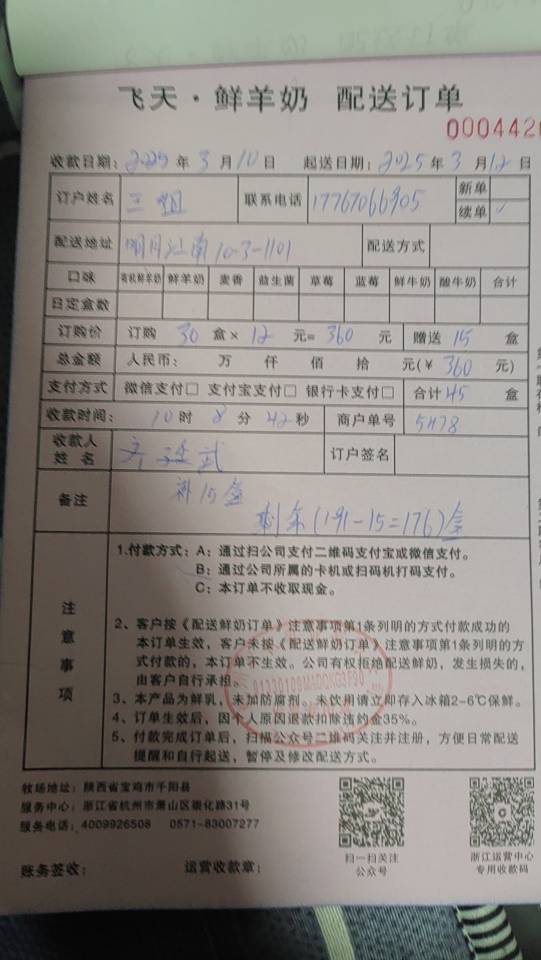 飞天·鲜羊奶 配送订单
000442
收款日期：2025年3月10日 起送日期：2025年3月12日
订户姓名 三姐 联系电话 17767066905 新单
续单 ✓
配送地址 明月江南10-3-1101 配送方式
口味 有机鲜羊奶 鲜羊奶 麦香 益生菌 草莓 蓝莓 鲜牛奶 酸牛奶 合计
日定盒数
订购价 订购 30 盒× 12 元= 360 元 赠送 15 盒
总金额 人民币： 万 仟 佰 拾 元(￥ 360 元)
支付方式 微信支付□ 支付宝支付□ 银行卡支付□ 合计 45 盒
收款时间： 10时8分42秒 商户单号 5478
收款人
姓名 订户签名
备注 补15盒
剩余(191-15=176)盒
注意事项
1.付款方式：A：通过扫公司支付二维码支付宝或微信支付。
B：通过公司所属的卡机或扫码机打码支付。
C：本订单不收取现金。
2、客户按《配送鲜奶订单》注意事项第1条列明的方式付款成功的
本订单生效，客户未按《配送鲜奶订单》注意事项第1条列明的方
式付款的，本订单不生效。公司有权拒绝配送鲜奶，发生损失的，
由客户自行承担。
3、本产品为鲜乳，未加防腐剂。未饮用请立即存入冰箱2-6℃保鲜。
4、订单生效后，因个人原因退款扣除违约金35%。
5、付款完成订单后，扫描公众号二维码关注并注册，方便日常配送
提醒和自行起送，暂停及修改配送方式。
牧场地址：陕西省宝鸡市千阳县
服务中心：浙江省杭州市萧山区崇化路31号
服务电话：4009926508 0571-83007277
扫一扫关注
公众号
浙江运营中心
专用收款码
账务签收： 运营收款章：